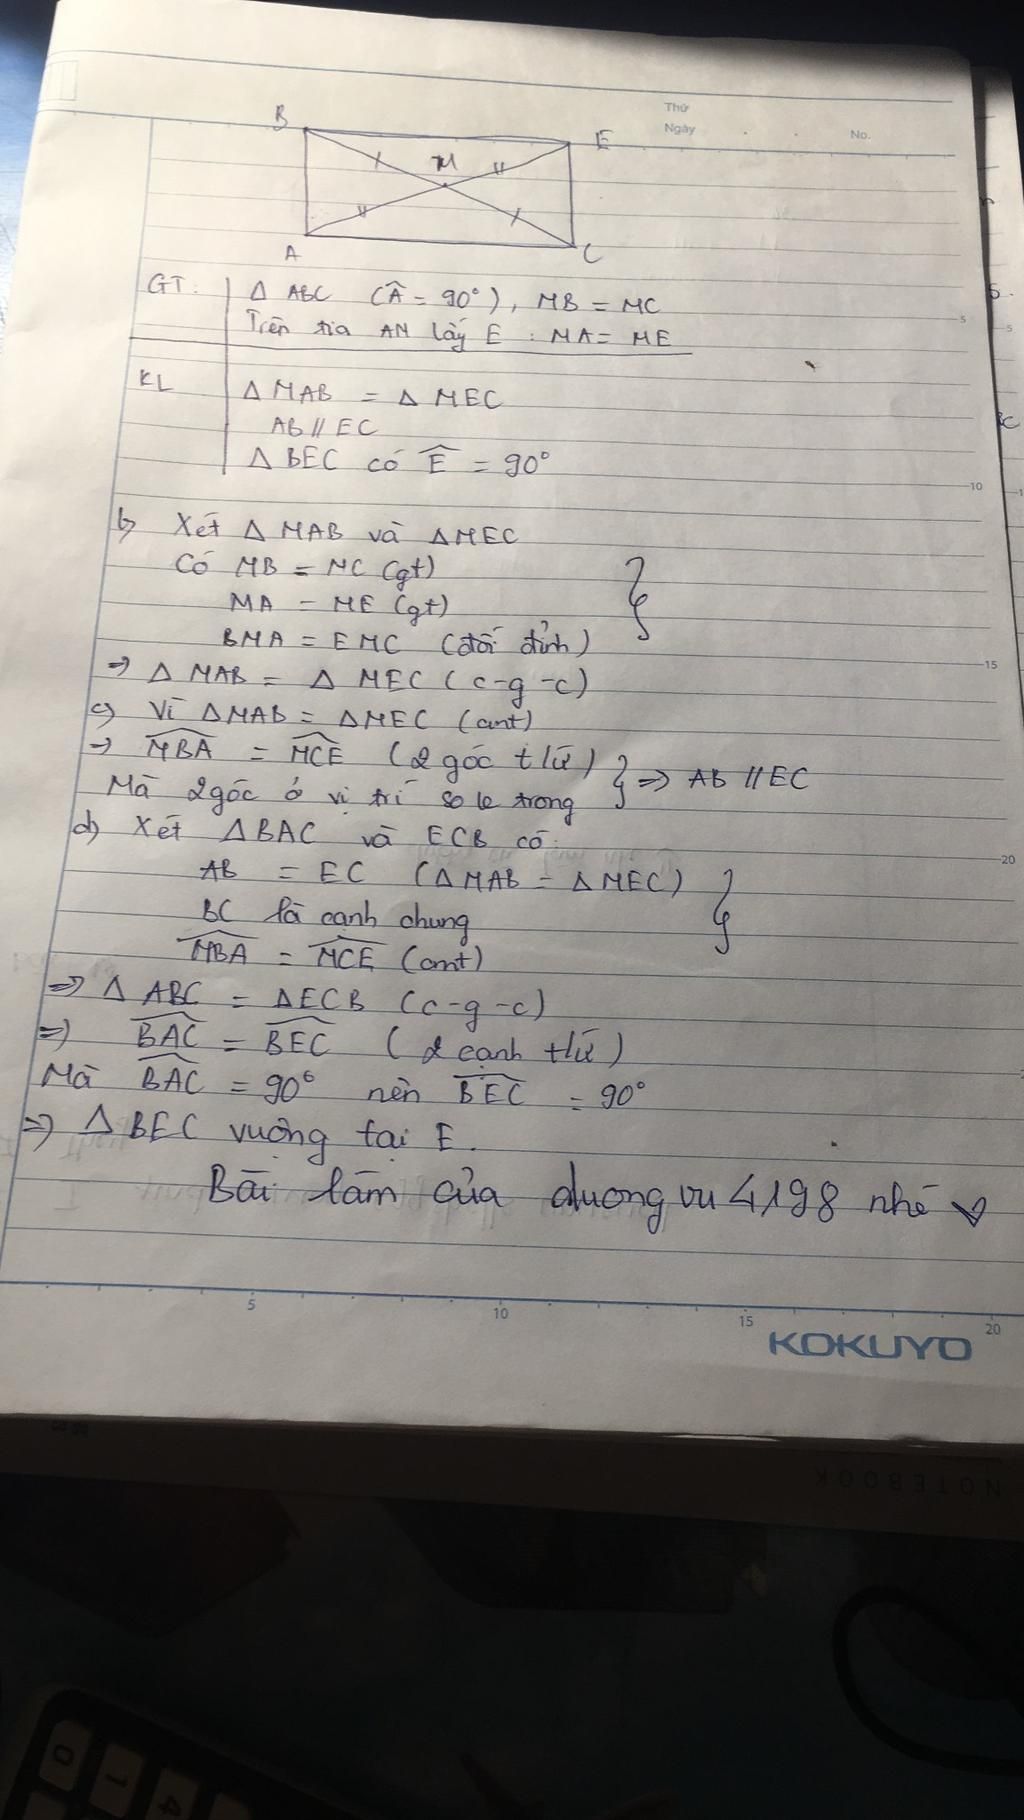 Thứ
Ngày
No.
B
E
M
A
C
GT:
Δ ABC (Â = 90°), MB = MC
Trên tia AM lấy E : MA = ME
KL
Δ MAB = Δ MEC
AB // EC
Δ BEC có Ê = 90°
b, Xét Δ MAB và Δ MEC
Có MB = MC (gt)
MA = ME (gt)
BMA = EMC (đối đỉnh)
=> Δ MAB = Δ MEC (c-g-c)
c, Vì Δ MAB = Δ MEC (cmt)
=> MBA = MCE (2 góc t/ứ)
Mà 2 góc ở vị trí so le trong } => AB // EC
d, Xét Δ BAC và ECB có:
AB = EC (Δ MAB = Δ MEC)
BC là cạnh chung
MBA = MCE (cmt)
=> Δ ABC = Δ ECB (c-g-c)
=> BAC = BEC (2 cạnh t/ứ)
Mà BAC = 90° nên BEC = 90°
=> Δ BEC vuông tại E.
Bài làm của duongvu4198 nhé
5 10 15 20
KOKUYO
NOTEBOOK